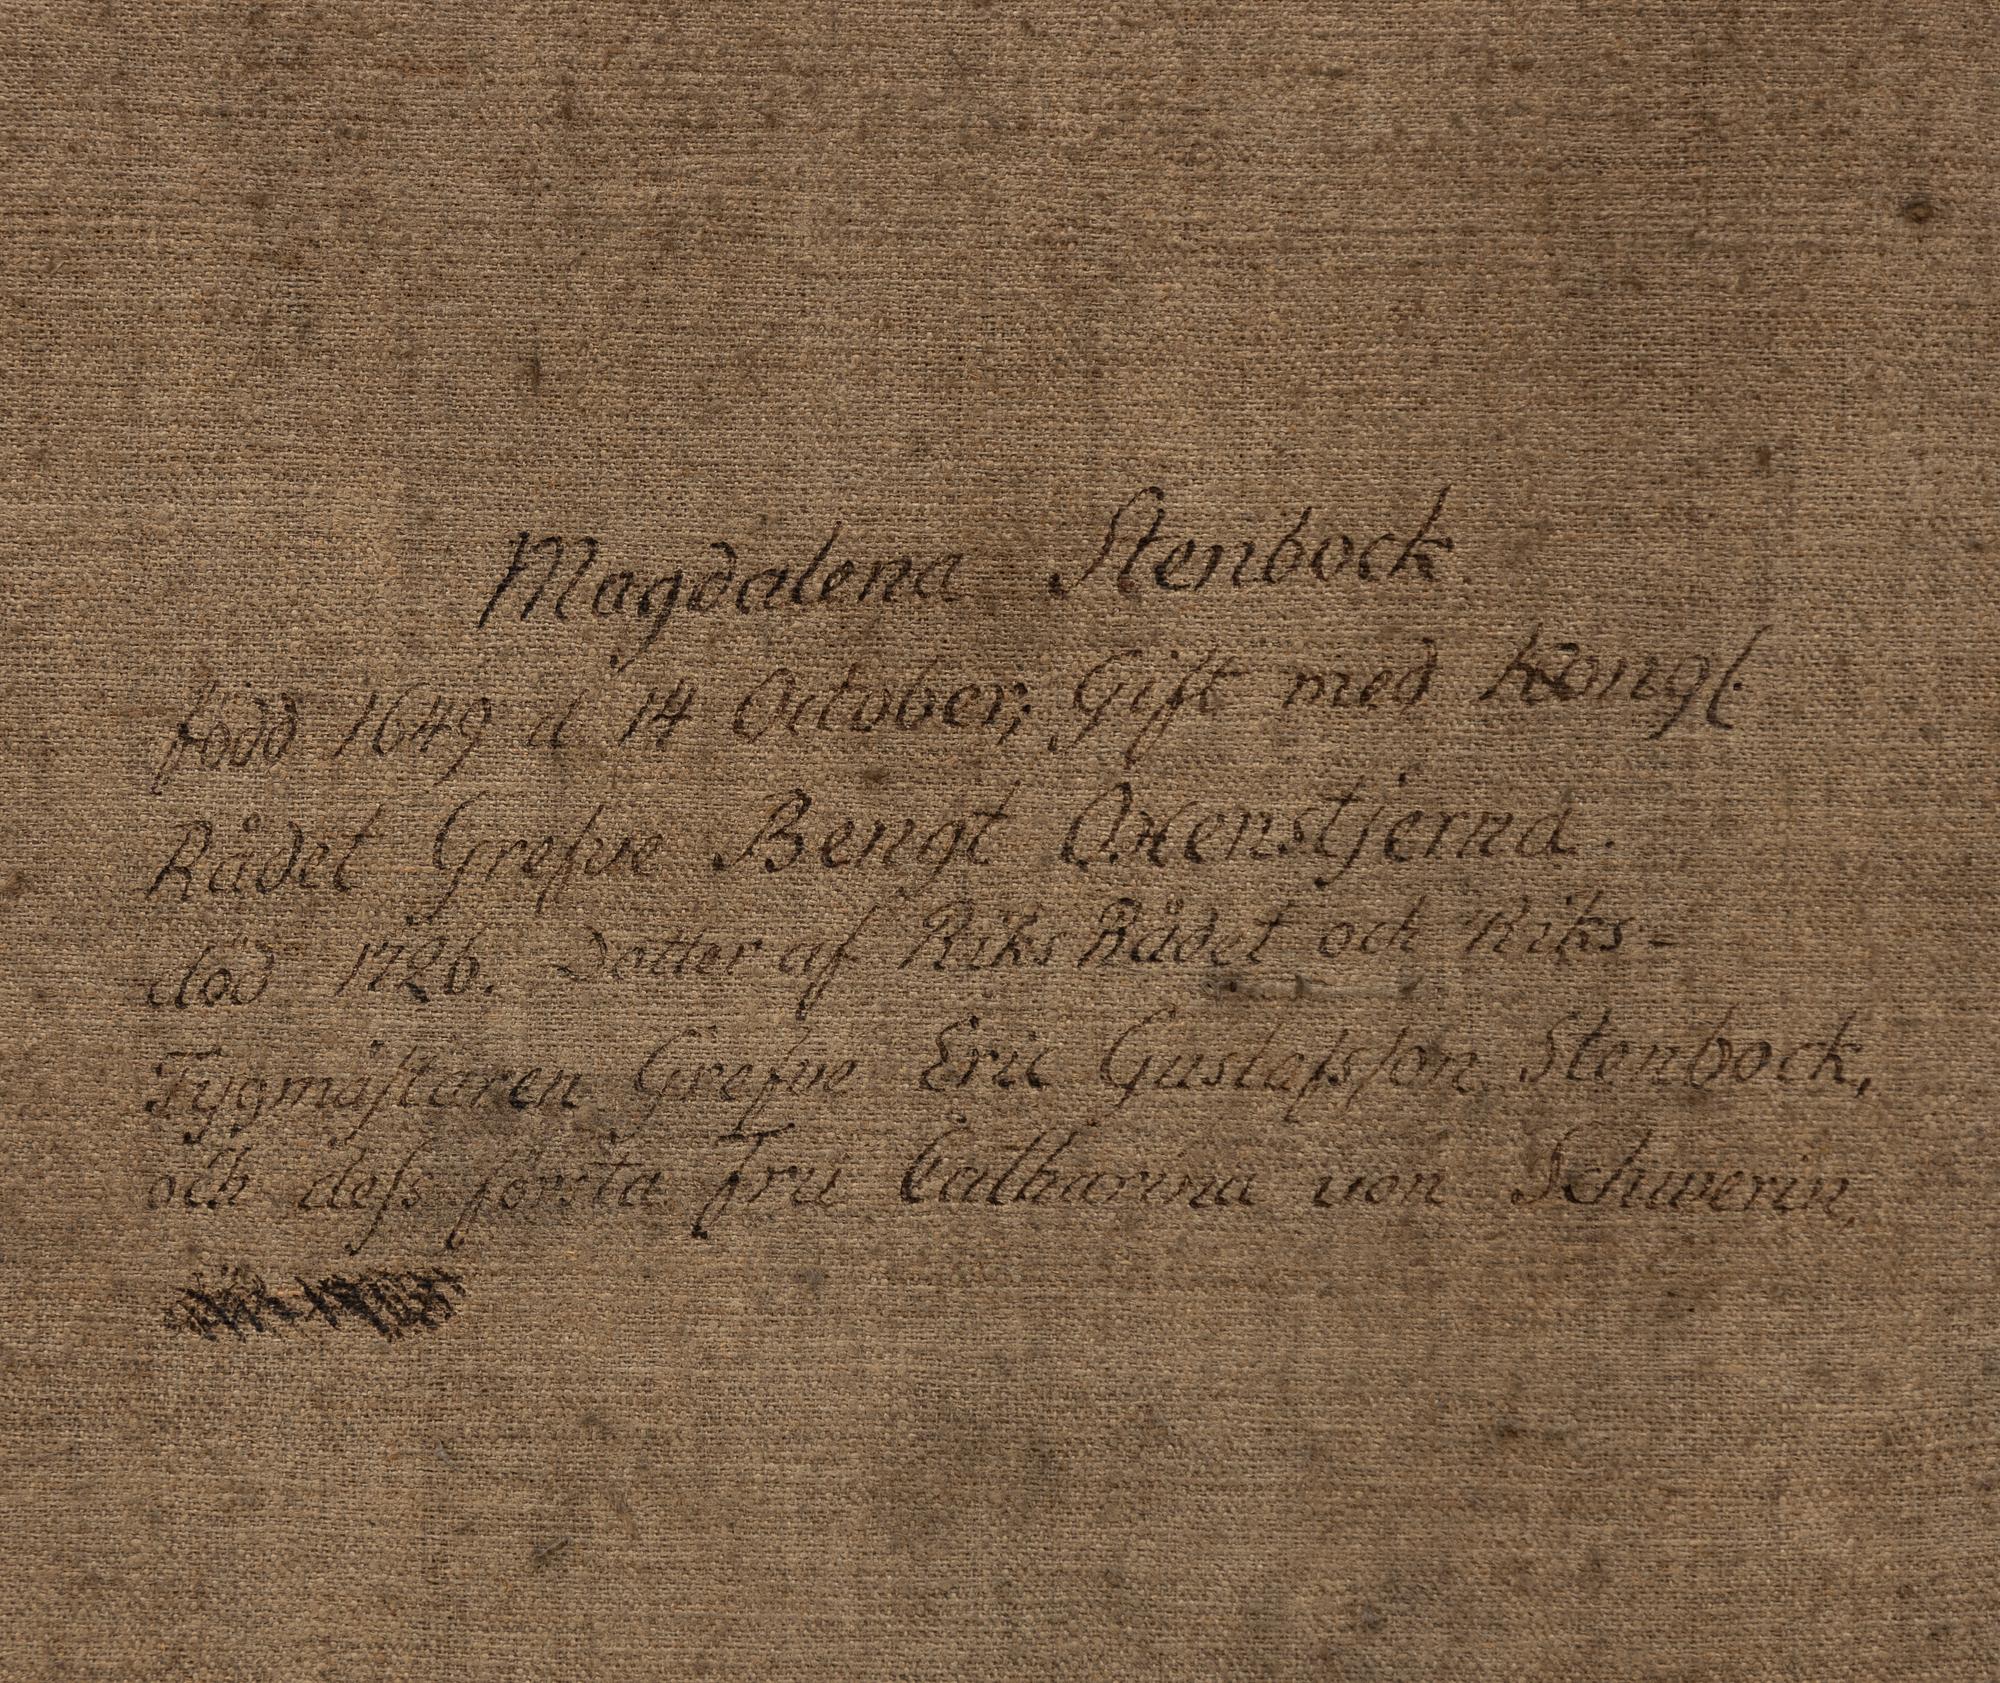 Magdalena Stenbock
född 1649 d 14 October; Gift med Kongl.
Rådet Grefve Bengt Oxenstjerna.
död 1726. Dotter af Riks Rådet och Riks-
Tygmästaren Grefve Eric Gustafsson Stenbock,
och dess första Fru Catharina von Schwerin,